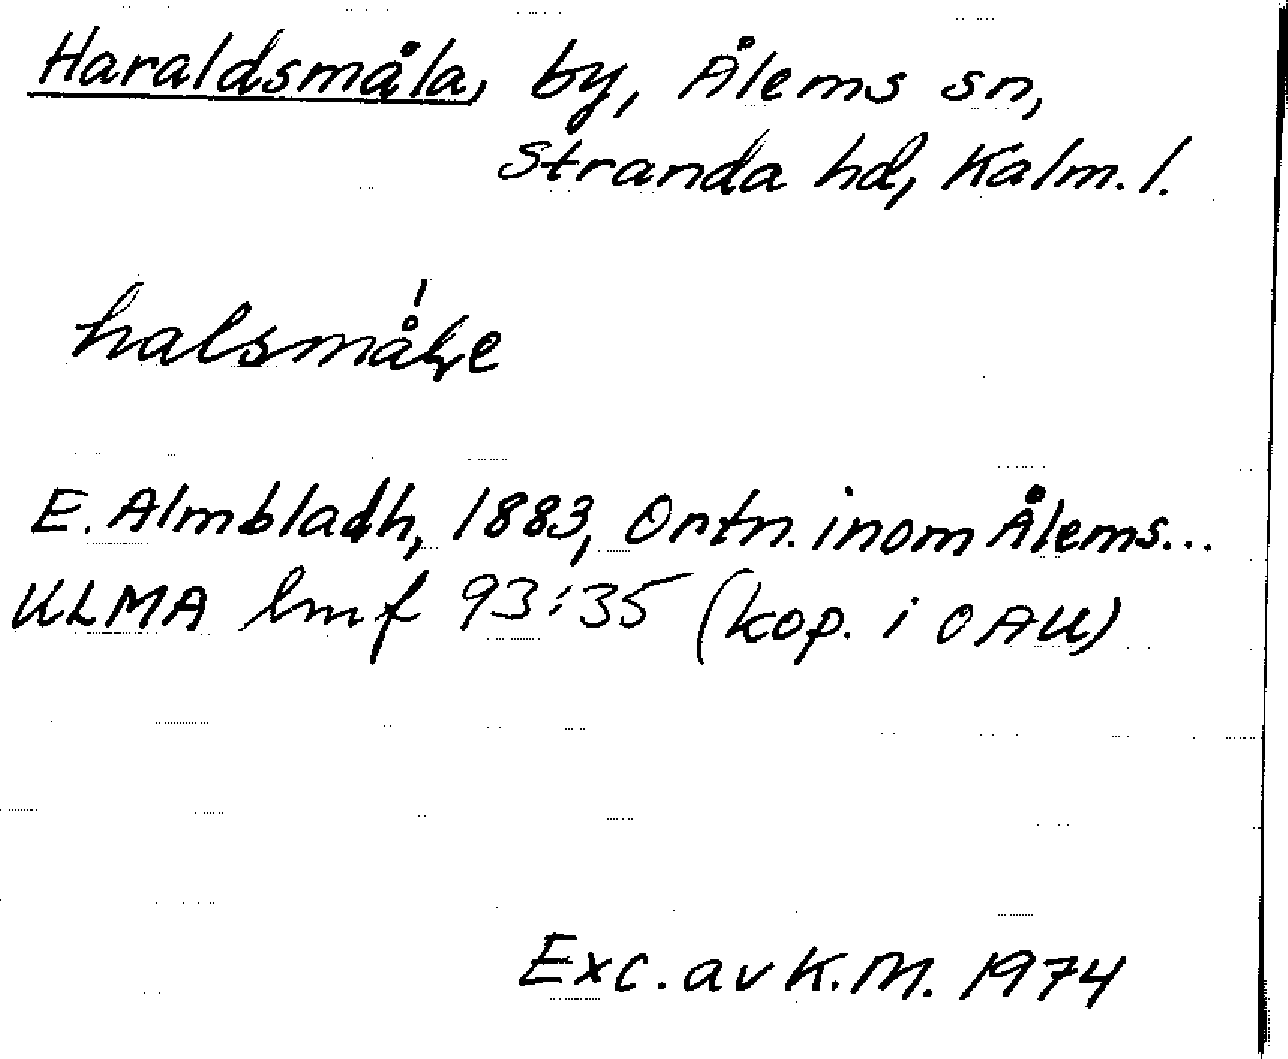 Haraldsmåla, by, Ålems sn,
Stranda hd, Kalm. l.
halsmå̍ɭe
E. Almbladh, 1883, Ortn. inom Ålems...
ULMA hmf 93:35 (kop. i OAU)
Exc. av K.M. 1974